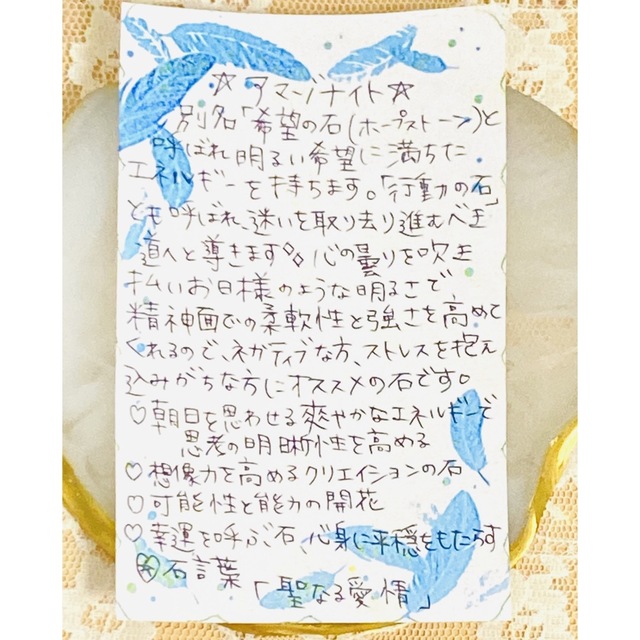 ☆アマゾナイト☆
別名「希望の石(ホープストーン)と
呼ばれ明るい希望に満ちた
エネルギーを持ちます。「行動力の石」
とも呼ばれ、迷いを取り去り進むべき
道へと導きます◇◇心の曇りを吹き
払いお日様のような明るさで
精神面での柔軟性と強さを高めて
くれるので、ネガティブな方、ストレスを抱え
込みがちな方にオススメの石です。
♡朝日を思わせる爽やかなエネルギーで
思考の明晰性を高める
♡想像力を高めるクリエイションの石
♡可能性と能力の開花
♡幸運を呼ぶ石、心身に平穏をもたらす
石言葉
「聖なる愛情」